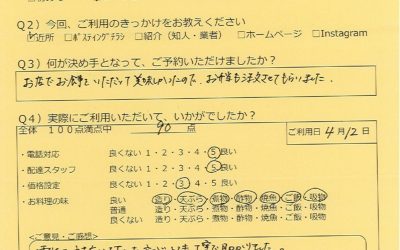 Q2）今回、ご利用のきっかけをお教えください
□近所 □ポスティングチラシ □紹介（知人・業者） □ホームページ □Instagram
Q3）何が決め手となって、ご予約いただけましたか？
お店でお食事をいただいて美味しかったので、お弁当も注文させてもらいました。
Q4）実際にご利用いただいて、いかがでしたか？
全体 100点満点中 90 点
ご利用日 4月12日
・電話対応 良くない 1・2・3・4・5 良い
・配達スタッフ 良くない 1・2・3・4・5 良い
・価格設定 良くない 1・2・3・4・5 良い
・お料理の味 良い 造り・天ぷら・煮物・酢物・焼魚・ご飯・吸物
普通 造り・天ぷら・煮物・酢物・焼魚・ご飯・吸物
良くない 造り・天ぷら・煮物・酢物・焼魚・ご飯・吸物
＜ご意見・ご感想＞